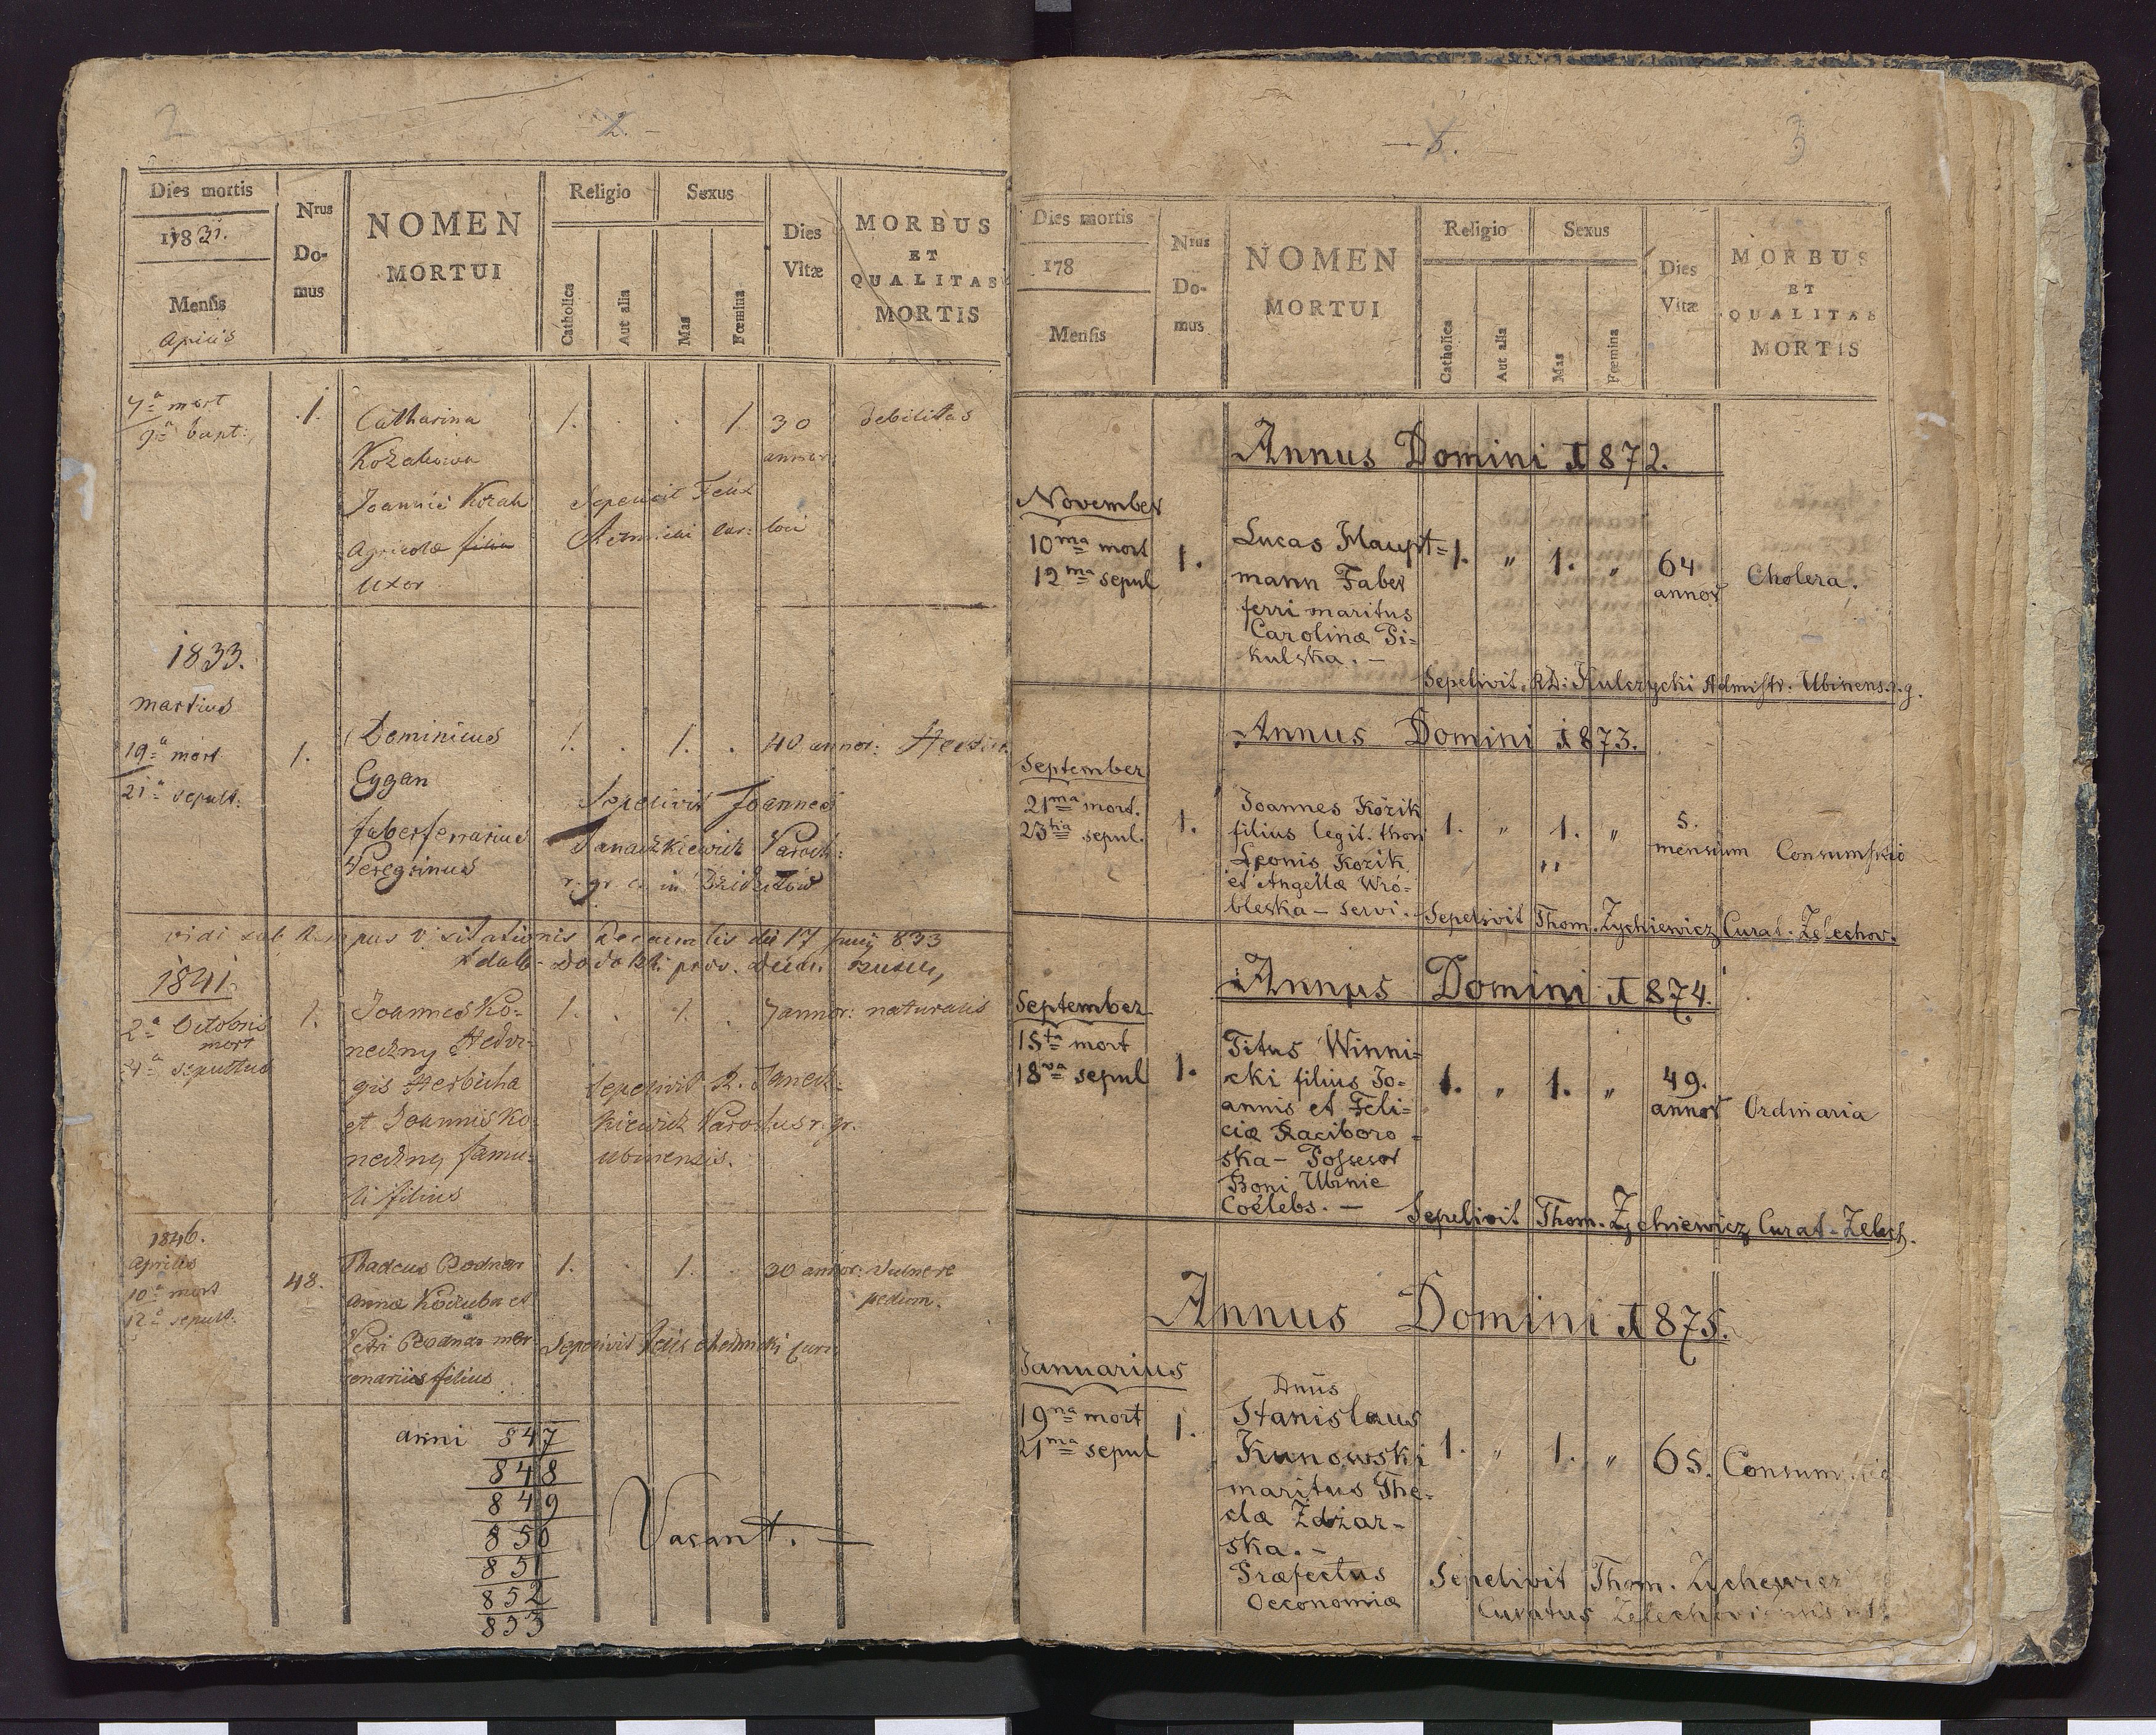 2
2.
Dies mortis
Nrus
Do-
mus
NOMEN
MORTUI
Religio
Sexus
Catholica
Aut alia
Mas
Fœmina
Dies
Vitæ
MORBUS
ET
QUALITAS
MORTIS
1831.
Mensis
Aprilis
7ª mort
1.
Catharina
1.
1
30
debilitas
9ª
annor
Joannis Kozak
Sepelivit Felix
Agricolæ filia
loci
Uxor
1833.
martius
19ª mort
1.
Dominicus
1.
.
1.
.
40 annor:
21ª sepult:
Cygan
Sepelivit Joannes
faber ferrarius
Janaszkiewicz Paroch:
Peregrinus
r. gr. c. in Dziedziłow
vidi sub tempus visitationis Decanalis die 17 Junij 833
1841.
2ª Octobris
mort
1.
Joannes Ko-
1.
.
1.
.
7 annor:
naturalis
4ª sepultus
neczny Hedvi-
gis Herbicha
Sepelivit R. Janecz-
et Joannis Ko-
kiewicz Parochus r. gr.
neczny famu-
ubinensis.
li filius
1846.
Aprilis
10ª mort
12ª sepult.
48.
Thadeus Bodnar
1.
.
1.
.
30 annor:
vulnere
pedum.
Anna Kočuba et
Petri Bodnar mer-
Sepelivit Felix Chelmicki Cura
cenarius filius
anni 847
848
849
850
851
852
853
Vacant.
3
5.
Dies mortis
Nrus
Do-
mus
NOMEN
MORTUI
Religio
Sexus
Catholica
Aut alia
Mas
Fœmina
Dies
Vitæ
MORBUS
ET
QUALITAS
MORTIS
178
Mensis
Annus Domini 1872.
November
10ma mort
12ma sepul
1.
Lucas Haupt=
1.
"
1.
"
64
annor
Cholera.
mann Faber
ferri maritus
Carolinæ Pi=
kulska. –
Sepelivit RD: Kulczycki Admistr. Ubinens. r. g.
Annus Domini 1873.
September
21ma mort.
23tia sepul.
1.
Joannes Kózik
1.
"
1.
"
5.
mensium
Consumptio
filius legit. thori
Leonis Kozik
et Angellæ Wró-
bleska – servi.
Sepelivit Thom. Zychiewicz Curat. Zelechov.
Annus Domini 1874.
September
15ta mort
18va sepul
1.
Titus Winni=
1.
"
1.
"
49.
annor
Ordinaria
cki filius Jo-
annis et Feli=
ciæ Raciboro-
ska – Possesor
Boni Ubinie
Coelebs. –
Sepelivit Thom. Zychiewicz Curat. Zelech.
Annus Domini 1875.
Januarius
19na mort
21ma sepul
1.
Dnus
Stanislaus
Kunowski
1.
"
1.
"
65.
Consumptio
maritus The-
clæ Zdżar-
ska. –
Præfectus
Sepelivit Thom. Zychewicz
Oeconomiæ
Curatus